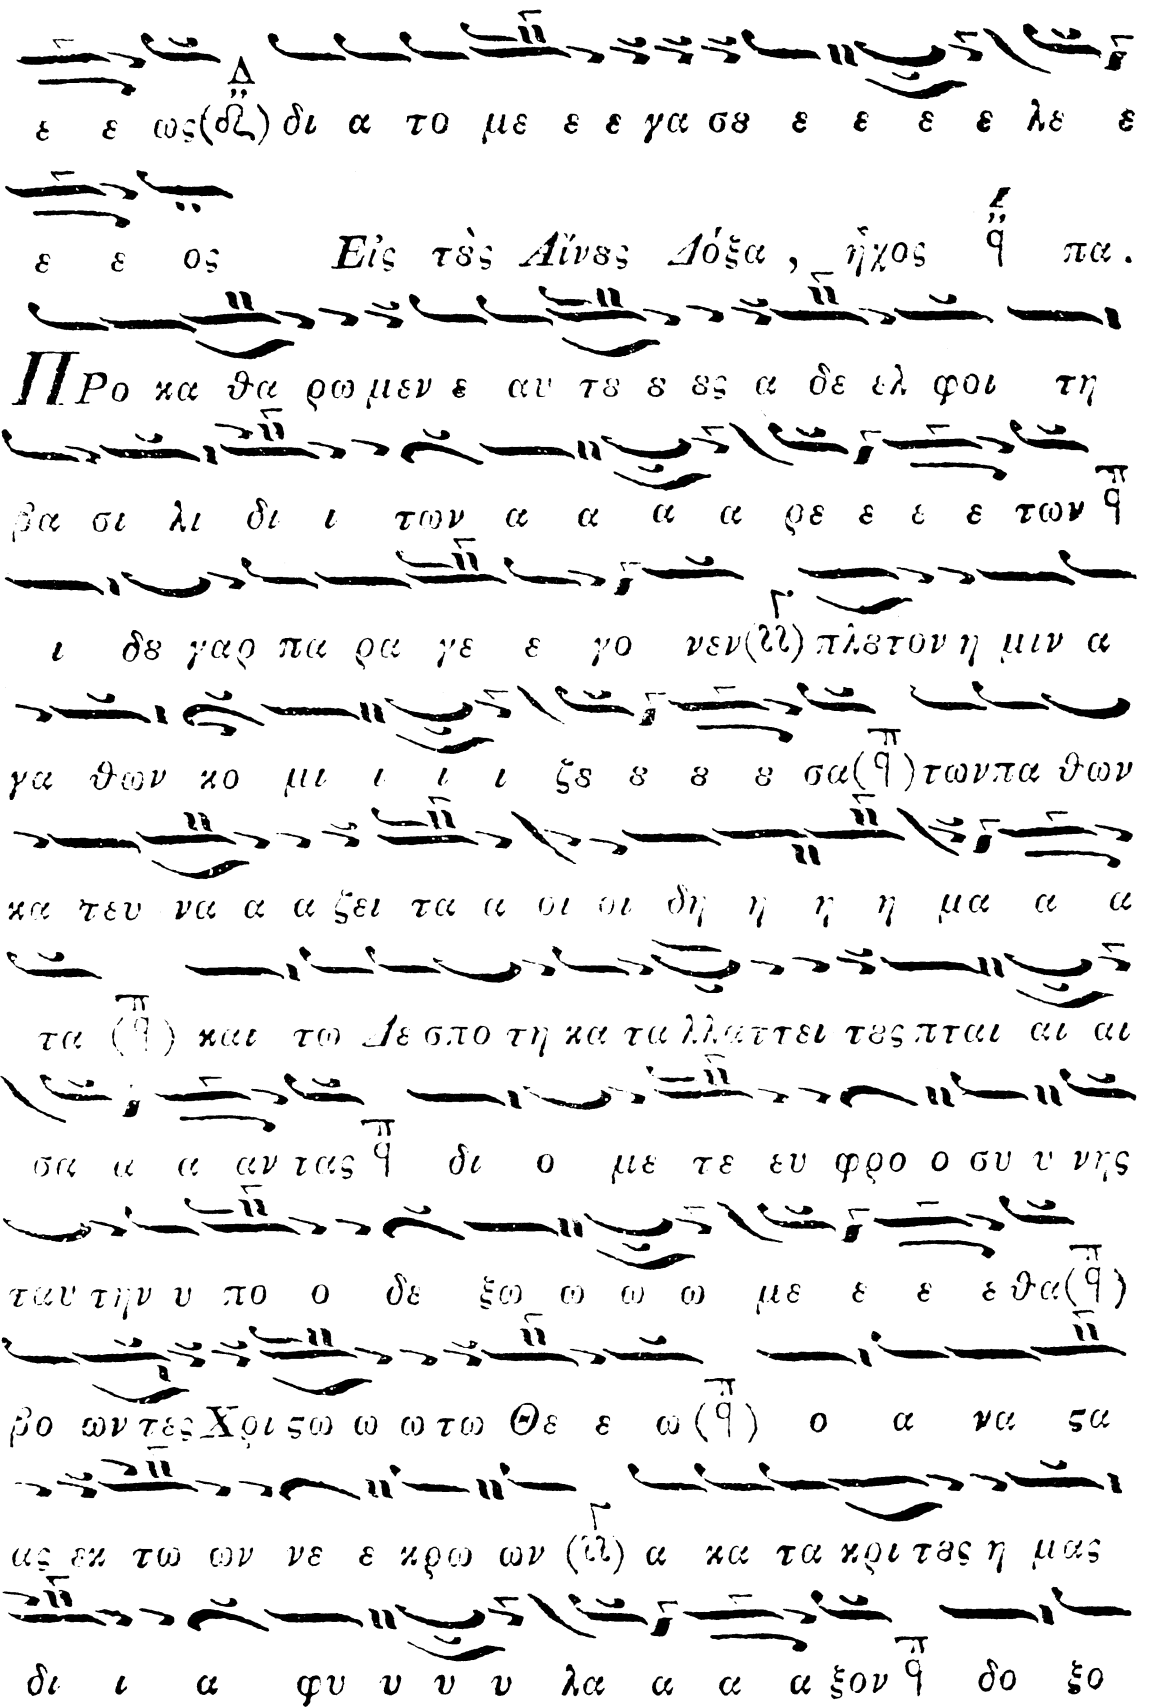 ε ε ως (Δ) δι α το με ε ε γα σȣ ε ε ε ε λε ε
ε ε ος Εἰς τȣ̀ς Αἴνȣς Δόξα, ἦχος πα.
ΠΡο κα θα ρω μεν ε αυ τȣ ȣ ȣς α δε ελ φοι τη
βα σι λι δι ι των α α α α ρε ε ε ε των π
ι δȣ γαρ πα ρα γε ε γο νεν (Γ) πλȣτον η μιν α
γα θων κο μι ι ι ι ζȣ ȣ ȣ ȣ σα (π) των πα θων
κα τευ να α α ζει τα α οι οι δη η η η μα α α
τα (π) και τω Δε σπο τη κα τα λλαττει τȣς πται αι αι
σα α α αν τας π δι ο με τε ευ φρο ο συ υ νης
ταυ την υ πο ο δε ξω ω ω ω με ε ε ε θα (π)
βο ων τες Χρι ϛω ω ω τω Θε ε ω (π) ο α να ϛα
ας εκ τω ων νε ε κρω ων (Γ) α κα τα κρι τȣς η μας
δι ι α φυ υ υ υ λα α α α ξον π δο ξο